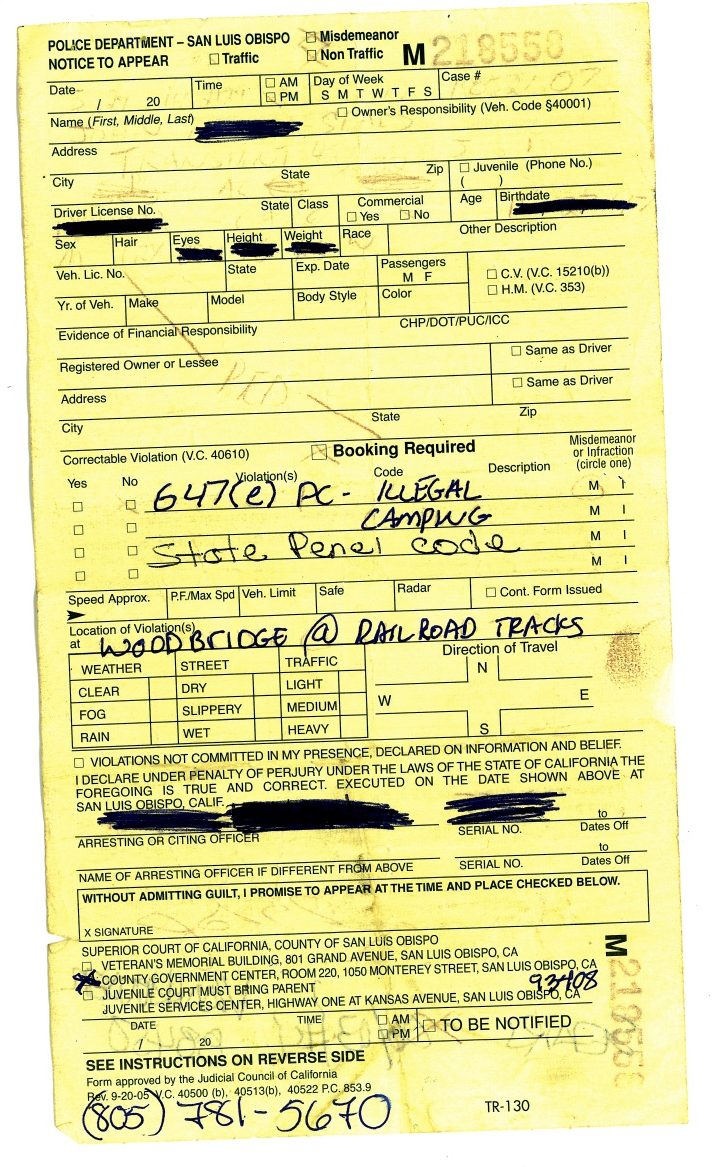 POLICE DEPARTMENT – SAN LUIS OBISPO ☐ Misdemeanor
NOTICE TO APPEAR ☐ Traffic ☐ Non Traffic M 218550
Date / 20 Time ☐ AM ☐ PM Day of Week S M T W T F S Case #
Name (First, Middle, Last) ☐ Owner's Responsibility (Veh. Code §40001)
Address
City State Zip ☐ Juvenile (Phone No.) ( )
Driver License No. State Class Commercial ☐ Yes ☐ No Age Birthdate
Sex Hair Eyes Height Weight Race Other Description
Veh. Lic. No. State Exp. Date Passengers M F ☐ C.V. (V.C. 15210(b))
Yr. of Veh. Make Model Body Style Color ☐ H.M. (V.C. 353)
Evidence of Financial Responsibility CHP/DOT/PUC/ICC
PED
Registered Owner or Lessee ☐ Same as Driver
Address ☐ Same as Driver
City State Zip
Correctable Violation (V.C. 40610) ☒ Booking Required Misdemeanor or Infraction (circle one)
Yes No Violation(s) Code Description
☐ ☐ 647(e) PC - ILLEGAL M I
☐ ☐ CAMPING M I
☐ ☐ State Penel code M I
☐ ☐ M I
Speed Approx. P.F./Max Spd Veh. Limit Safe Radar ☐ Cont. Form Issued
Location of Violation(s)
at WOODBRIDGE @ RAILROAD TRACKS
WEATHER STREET TRAFFIC Direction of Travel
CLEAR DRY LIGHT N
FOG SLIPPERY MEDIUM W E
RAIN WET HEAVY S
☐ VIOLATIONS NOT COMMITTED IN MY PRESENCE, DECLARED ON INFORMATION AND BELIEF.
I DECLARE UNDER PENALTY OF PERJURY UNDER THE LAWS OF THE STATE OF CALIFORNIA THE
FOREGOING IS TRUE AND CORRECT. EXECUTED ON THE DATE SHOWN ABOVE AT
SAN LUIS OBISPO, CALIF.
to
ARRESTING OR CITING OFFICER SERIAL NO. Dates Off
to
NAME OF ARRESTING OFFICER IF DIFFERENT FROM ABOVE SERIAL NO. Dates Off
WITHOUT ADMITTING GUILT, I PROMISE TO APPEAR AT THE TIME AND PLACE CHECKED BELOW.
X SIGNATURE
SUPERIOR COURT OF CALIFORNIA, COUNTY OF SAN LUIS OBISPO
☐ VETERAN'S MEMORIAL BUILDING, 801 GRAND AVENUE, SAN LUIS OBISPO, CA
COUNTY GOVERNMENT CENTER, ROOM 220, 1050 MONTEREY STREET, SAN LUIS OBISPO, CA
93408
☐ JUVENILE COURT MUST BRING PARENT
JUVENILE SERVICES CENTER, HIGHWAY ONE AT KANSAS AVENUE, SAN LUIS OBISPO, CA
DATE / 20 TIME ☐ AM ☐ PM ☐ TO BE NOTIFIED
M 218550
SEE INSTRUCTIONS ON REVERSE SIDE
Form approved by the Judicial Council of California
Rev. 9-20-05 V.C. 40500 (b), 40513(b), 40522 P.C. 853.9
(805) 781-5670
TR-130